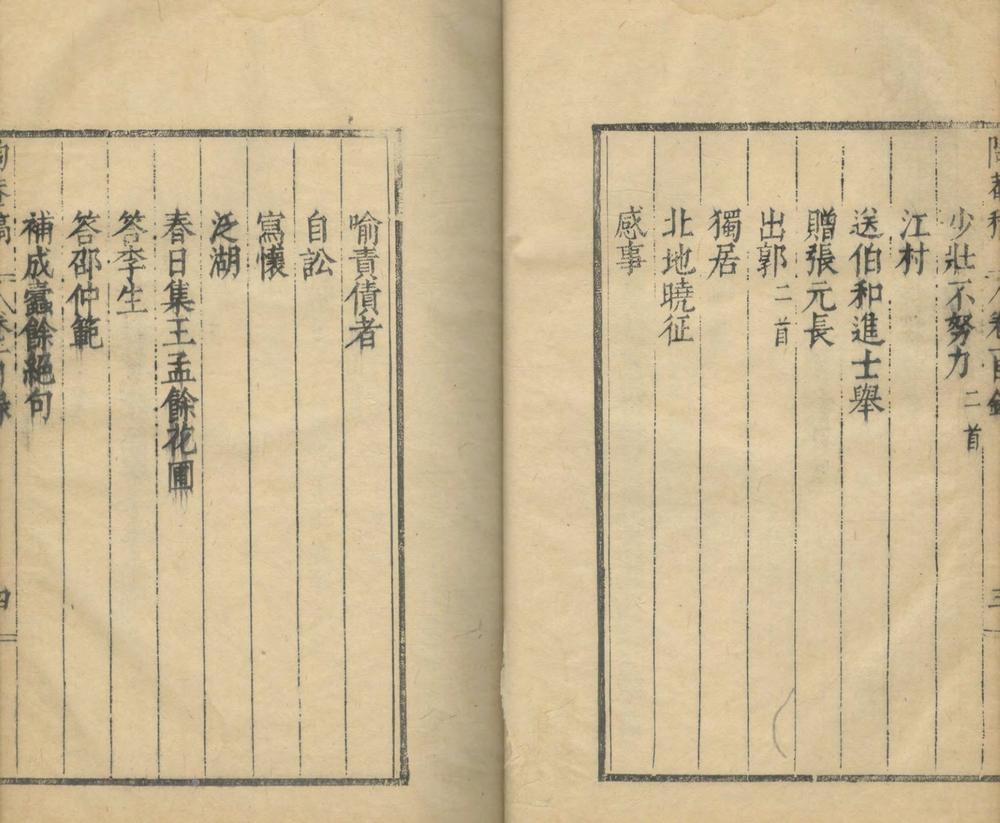 少壯不努力 二首
江村
送伯和進士舉
贈張元長
出郭 二首
獨居
北地曉征
感事
喻責債者
自訟
寫懷
泛湖
春日集王孟餘花圃
答李生
答邵仲範
補成蠹餘絕句